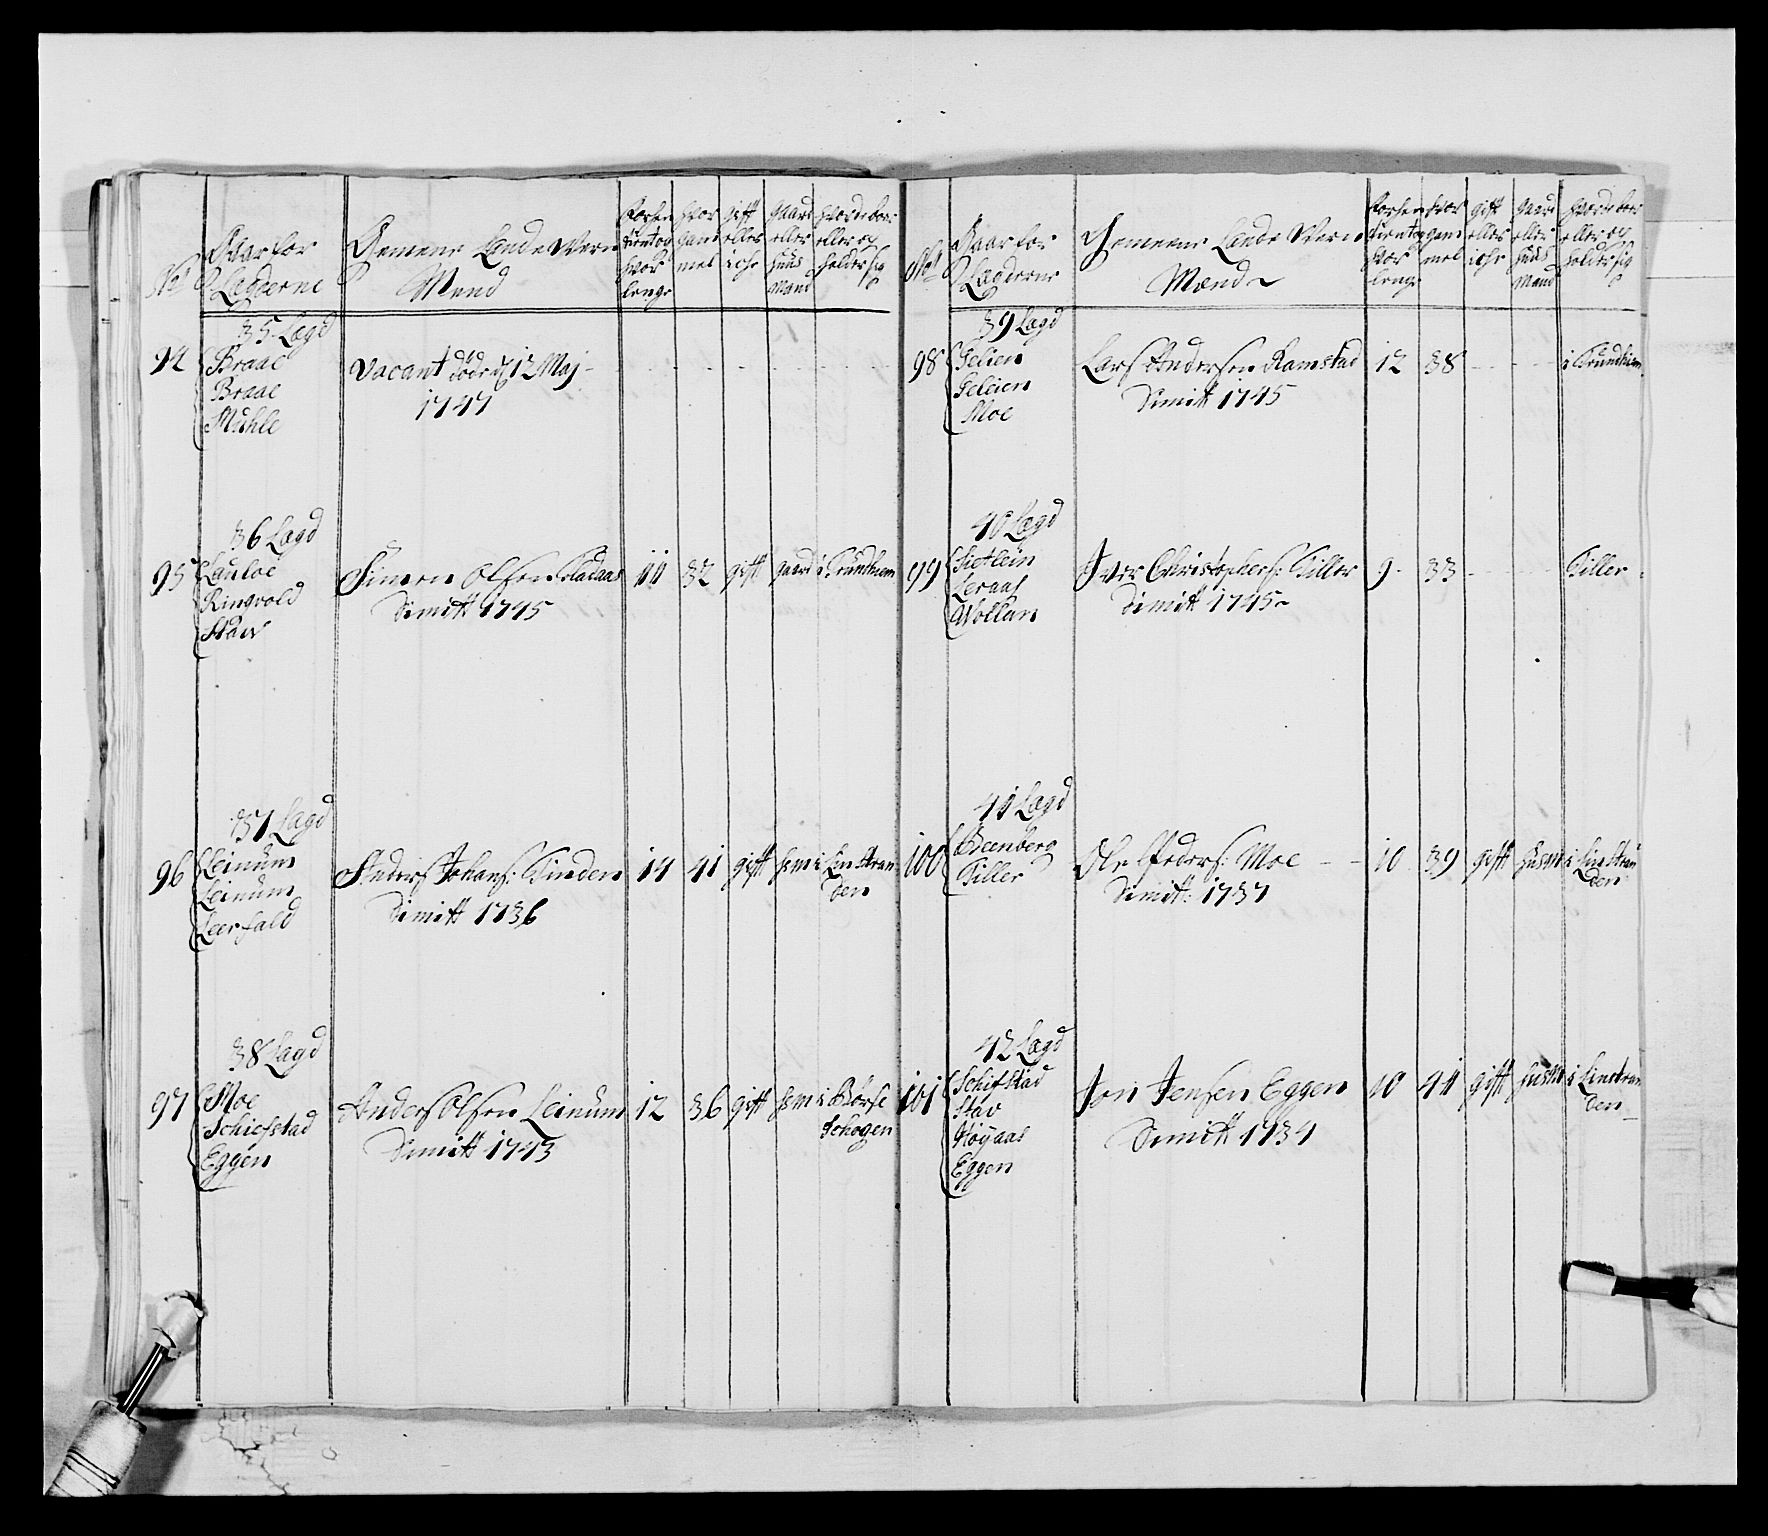 No
Staar for
Lægderne
Gemene Lande Wern
Mend
Forhen
tient og
hvor
lenge
hvor
gam
mel
gift
eller
iche
gaard
eller
huus
Mand
hvorde boer
eller op
holder sig
35 Lægd
94
Braae
Braae
Muhle
Vacant døde d 12 Maj
1747
36 Lægd
95
Lauloe
Ringvold
Stav
Simen Olsen Aadaas
Dimitt 1745
10 32 gift gaard i Trundhiem
37 Lægd
96
Leinum
Leinum
Leerfald
Anders Johans: Kinden
Dimitt 1736
14 41 gift hsm i Lenstran
den
38 Lægd
97
Moe
Schiefstad
Eggen
Anders Olsen Leinum
Dimitt 1743
12 36 gift hsm i Børse
Schogen
No
Staar for
Lægderne
Gemeene Lande Wern
Mænd
Forhen
tient og
hvor
lenge
hvor
gam
mel
gift
eller
iche
gaard
eller
huus
Mand
hvorde boer
eller op
holder sig
39 Lægd
98
Selien
Seleien
Moe
Lars Andersen Ramstad
Dimitt 1745
12 38
i Trundhiem
40 Lægd
99
Sietlein
Leraas
Wollan
Iver Christophers: Tiller
Dimitt 1745
9 33
Tiller
41 Lægd
100
Beenberg
Tiller
Ole Peders: Moe
Dimitt: 1737
10 39 gift husm i Linstran
den
42 Lægd
101
Schifstad
Stav
Høyaas
Eggen
Jon Jensen Eggen
Dimitt 1734
10 44 gift husm i Linstran
den